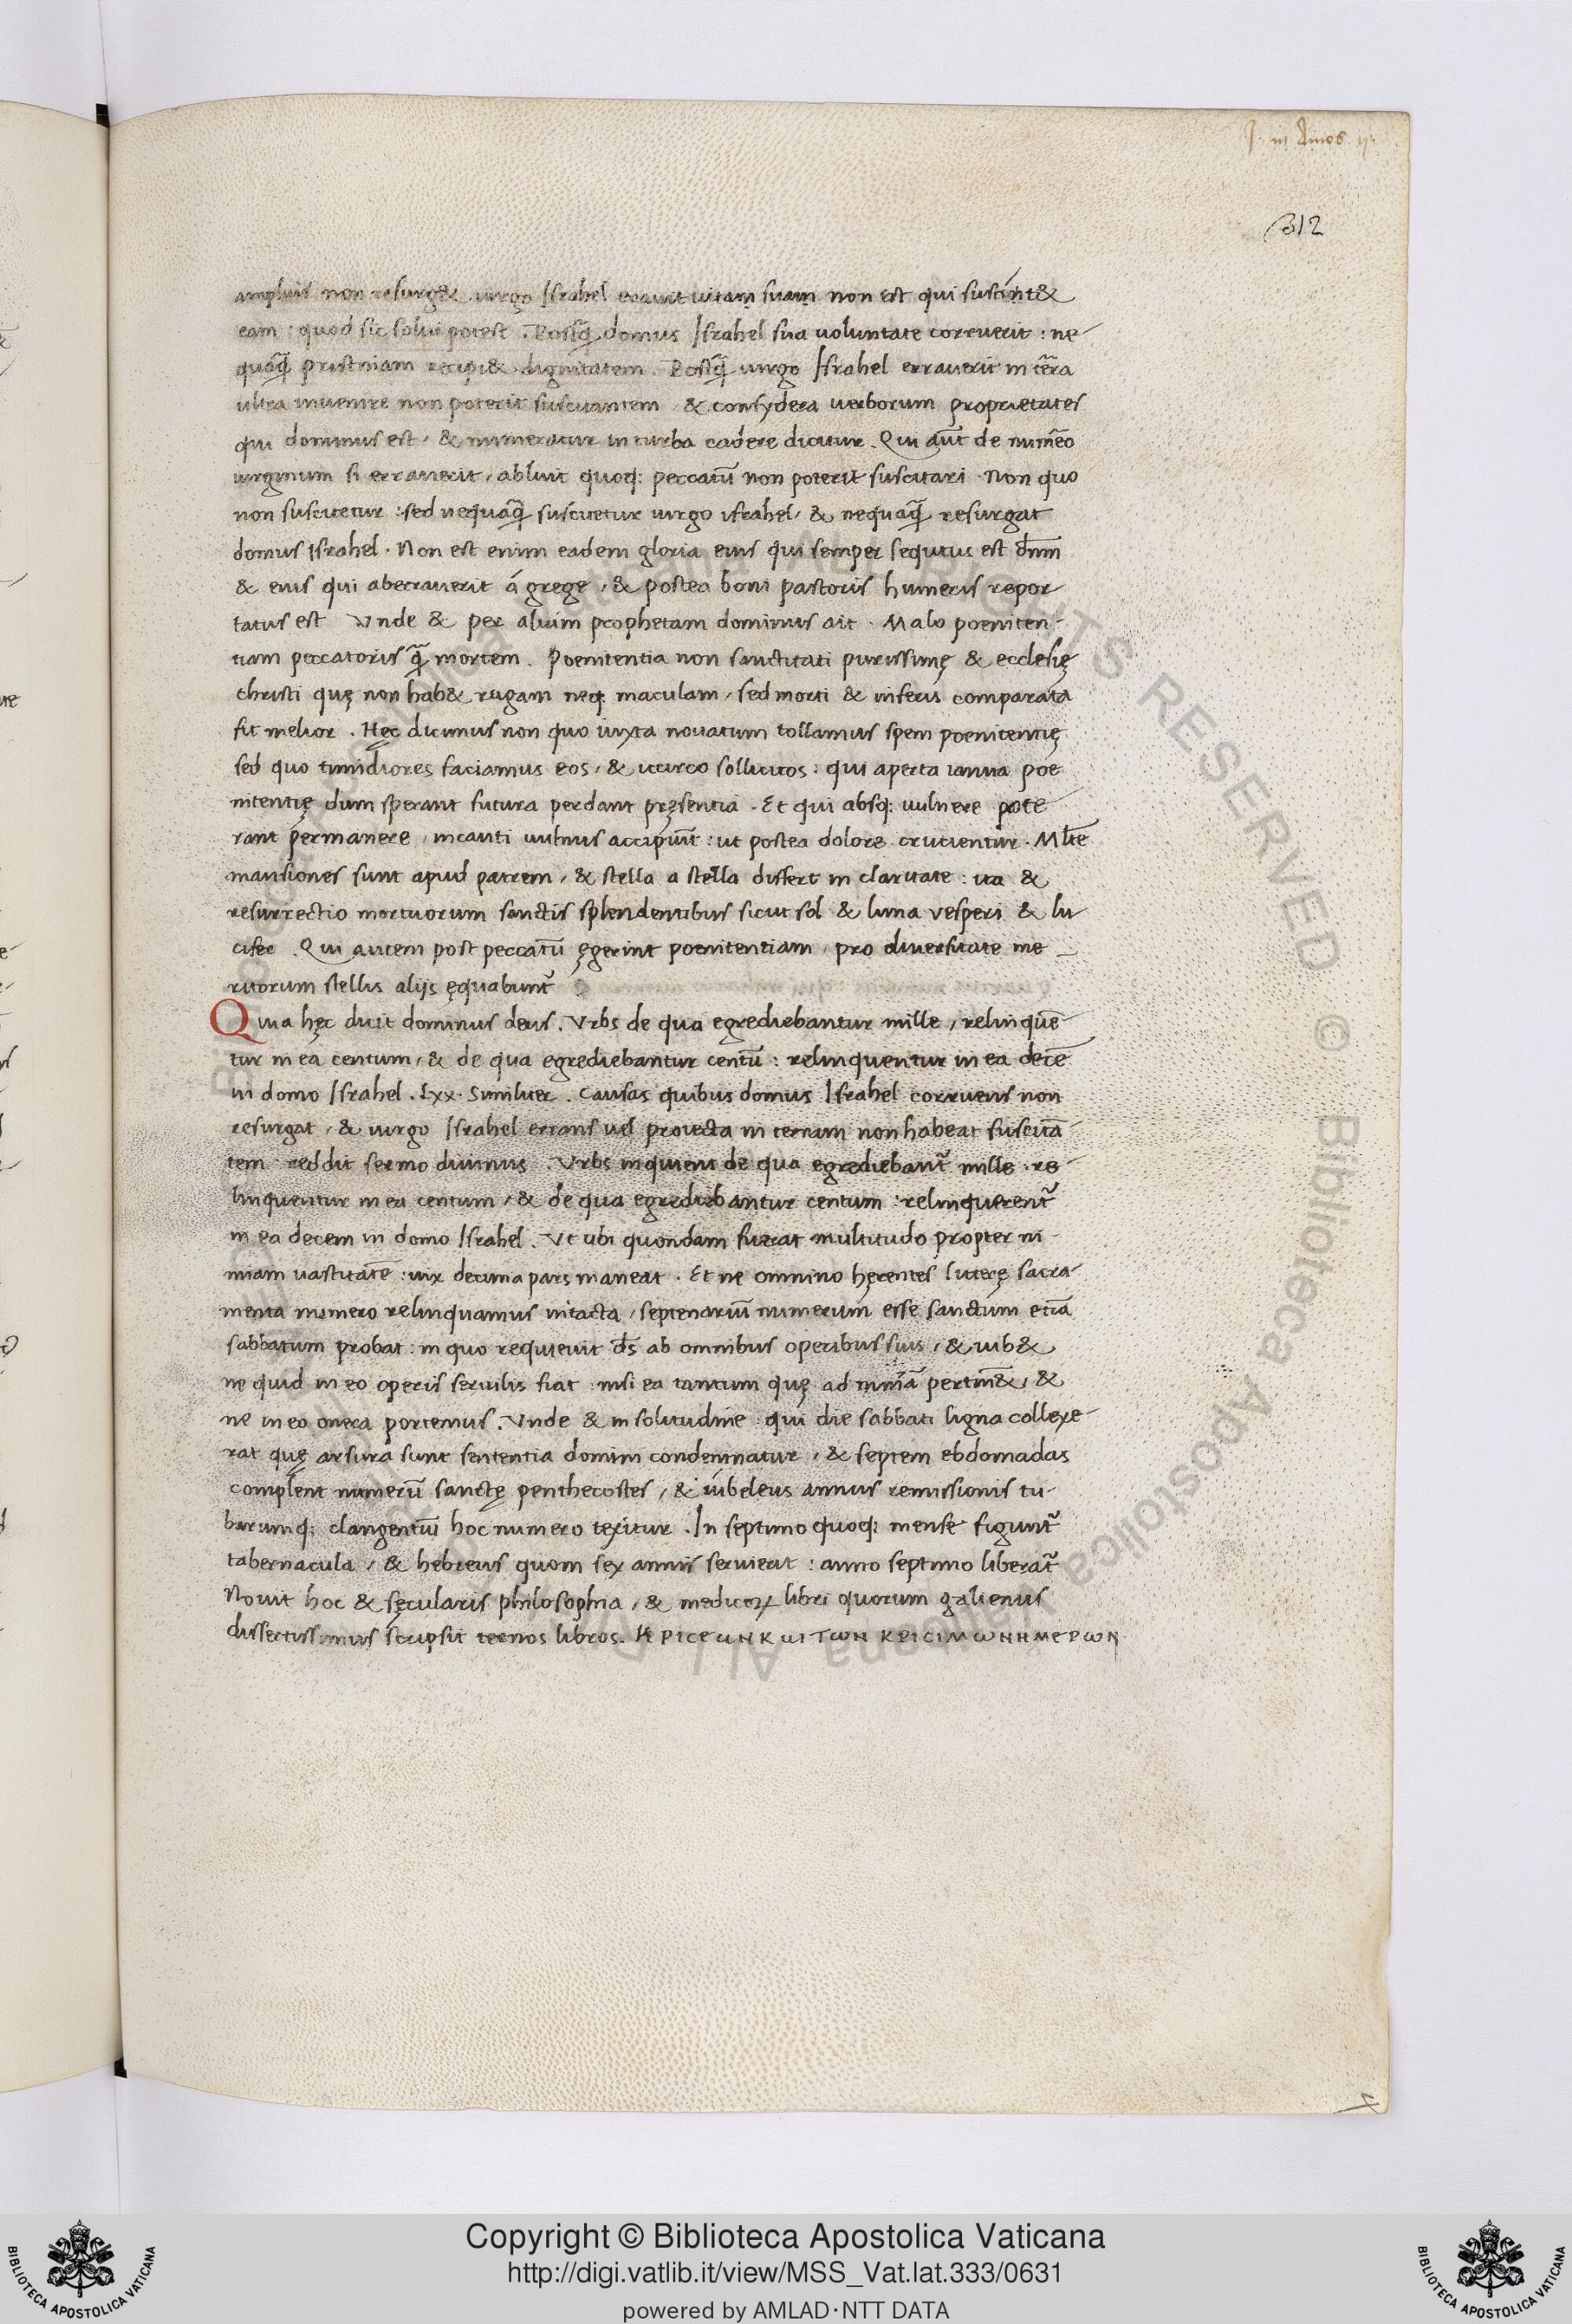 J. in Amos. ij.
312
amplius non resurg& uirgo Israhel erauit uitam suam non est qui suscint&
eam : quod sic solui potest . Postq̃ domus Israhel sua voluntate corruerit : ne-
quaq̃ pristniam recipi& dignitatem . Postq̃ uirgo Israhel errauerit in tẽra
ultra inuenire non poterit suscitantem , & consydera uerborum proprietates
qui dominus est , & numeratur in turba cadere dicitur . Qui aũt de numẽo
uirginum si errauerit , abluit quoq; peccatũ non poterit suscitari . Non quo
non suscitetur : sed nequaq̃ suscitetur uirgo israhel , & nequaq̃ resurgat
domus Israhel . Non est enim eadem gloria eius qui semper sequtus est dñm
& eius qui aberrauerit á grege , & postea boni pastoris humeris repor
tatus est Vnde & per alium prophetam dominus ait . Malo poeniten-
tiam peccatoris q̃ mortem . Poenitentia non sanctitati purissimę & ecclesię
christi quę non hab& rugam neq; maculam , sed morti & inferis comparata
fit melior . Hęc dicimus non quo iuxta nouatum tollamus spem poenitentię
sed quo timidiores faciamus eos , & iccirco sollicitos : qui aperta ianua poe
nitentię dum sperant futura perdant pręsentia . Et qui absq; uulnere pote
rant permanere , incauti uulnus accipiũt : ut postea dolore crucientur . Mlte
mansiones sunt apud patrem , & stella a stella differt in claritate : ita &
resurrectio mortuorum sanctis splendentibus sicut sol & luna vesperi & lu
cifer . Qui autem post peccatũ ęgerint poenitentiam , pro diuersitate me
ritorum stellis alijs ęquabunt᷑
Quia hęc dicit dominus deus . Vrbs de qua egrediebantur mille , relinquẽ
tur in ea centum , & de qua egrediebantur centũ : relinquentur in ea decẽ
in domo Israhel . Lxx . Similiter . Causas quibus domus Israhel corruens non
resurgat , & uirgo Israhel errans uel proiecta in terram non habeat suscitã
tem reddit sermo diuinus . Vrbs inquiens de qua egrediebant᷑ mille : re
linquentur in ea centum , & de qua egrediebantur centum : relinquerent᷑
in ea decem in domo Israhel . Vt ubi quondam fuerat multitudo propter ni
miam uastitatẽ : uix decima pars maneat . Et ne omnino hęrentes litterę sacra
menta numero relinquamus intacta , septenariũ numerum esse sanctum etiã
sabbatum probat : in quo requieuit ds̃ ab omnibus operibus suis , & iub&
ne quid in eo operis seruilis fiat : nisi ea tantum quę ad nimiã pertin& , &
ne in eo onera portemus . Vnde & in solitudine qui die sabbati ligna collexe
rat quę arsura sunt sententia domini condemnatur , & septem ebdomadas
complent numerũ sanctę penthecostes , & iubeleus annus remissionis tu
barumq; clangentiũ hoc numero texitur . In septimo quoq; mense figunt᷑
tabernacula , & hebreus quom sex annis seruierit : anno septimo liberat᷑
Nouit hoc & sęcularis philosophia , & medicoꝝ libri quorum galienus
dissertissimus scripsit ternos libros . ΚΡΙCΕωΝ ΚωΙ ΤωΝ ΚΡΙCΙΜωΝ ΗΜΕΡωΝ
Copyright © Biblioteca Apostolica Vaticana
http://digi.vatlib.it/view/MSS_Vat.lat.333/0631
powered by AMLAD·NTT DATA